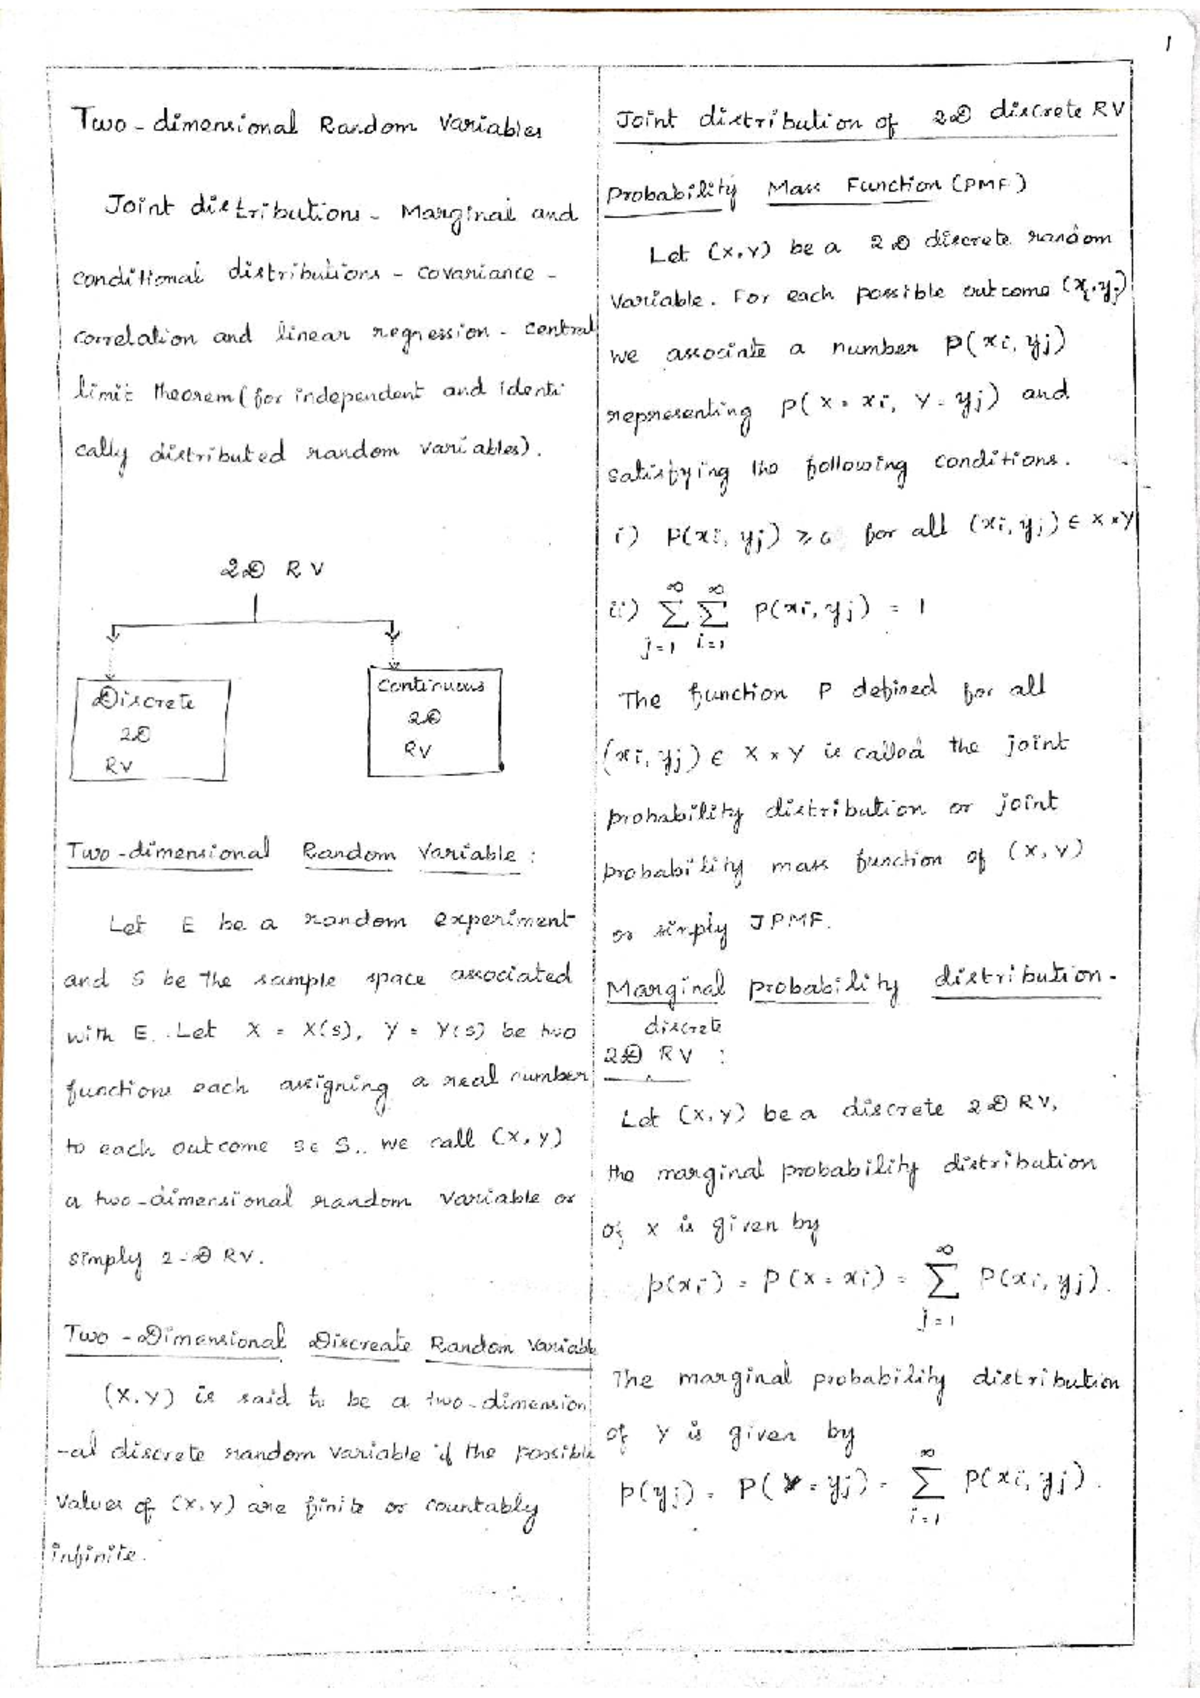 1
Two-dimensional Random Variables
Joint distributions - Marginal and
conditional distributions - covariance -
correlation and linear regression - central
limit theorem (for independent and identi
cally distributed random variables).
2D RV
Discrete
2D
RV
Continuous
2D
RV
Two-dimensional Random Variable :
Let E be a random experiment
and S be the sample space associated
with E. Let X = X(s), Y = Y(s) be two
functions each assigning a real number
to each outcome s∈ S.. we call (X, Y)
a two-dimensional random variable or
simply 2-D RV.
Two-Dimensional Discreate Random Variable
(X,Y) is said to be a two-dimension
-al discrete random variable if the possible
values of (X,Y) are finite or countably
infinite.
Joint distribution of 2D discrete RV
Probability Mass Function (PMF)
Let (X,Y) be a 2D discrete random
variable. For each possible outcome (xi,yj)
we associate a number P(xi, yj)
representing P(X = xi, Y = yj) and
satisfying the following conditions.
i) P(xi, yj) ⩾ 0 for all (xi, yj) ∈ X×Y
ii) ∞∑j=1 ∞∑i=1 P(xi, yj) = 1
The function P defined for all
(xi, yj) ∈ X × Y is called the joint
probability distribution or joint
probability mass function of (X,Y)
or simply JPMF.
Marginal probability distribution -
discrete
2D RV :
Let (X,Y) be a discrete 2D RV,
the marginal probability distribution
of X is given by
p(xi) = P(X = xi) = ∞∑j=1 P(xi, yj).
The marginal probability distribution
of Y is given by
p(yj) = P(Y = yj) = ∞∑i=1 P(xi, yj).